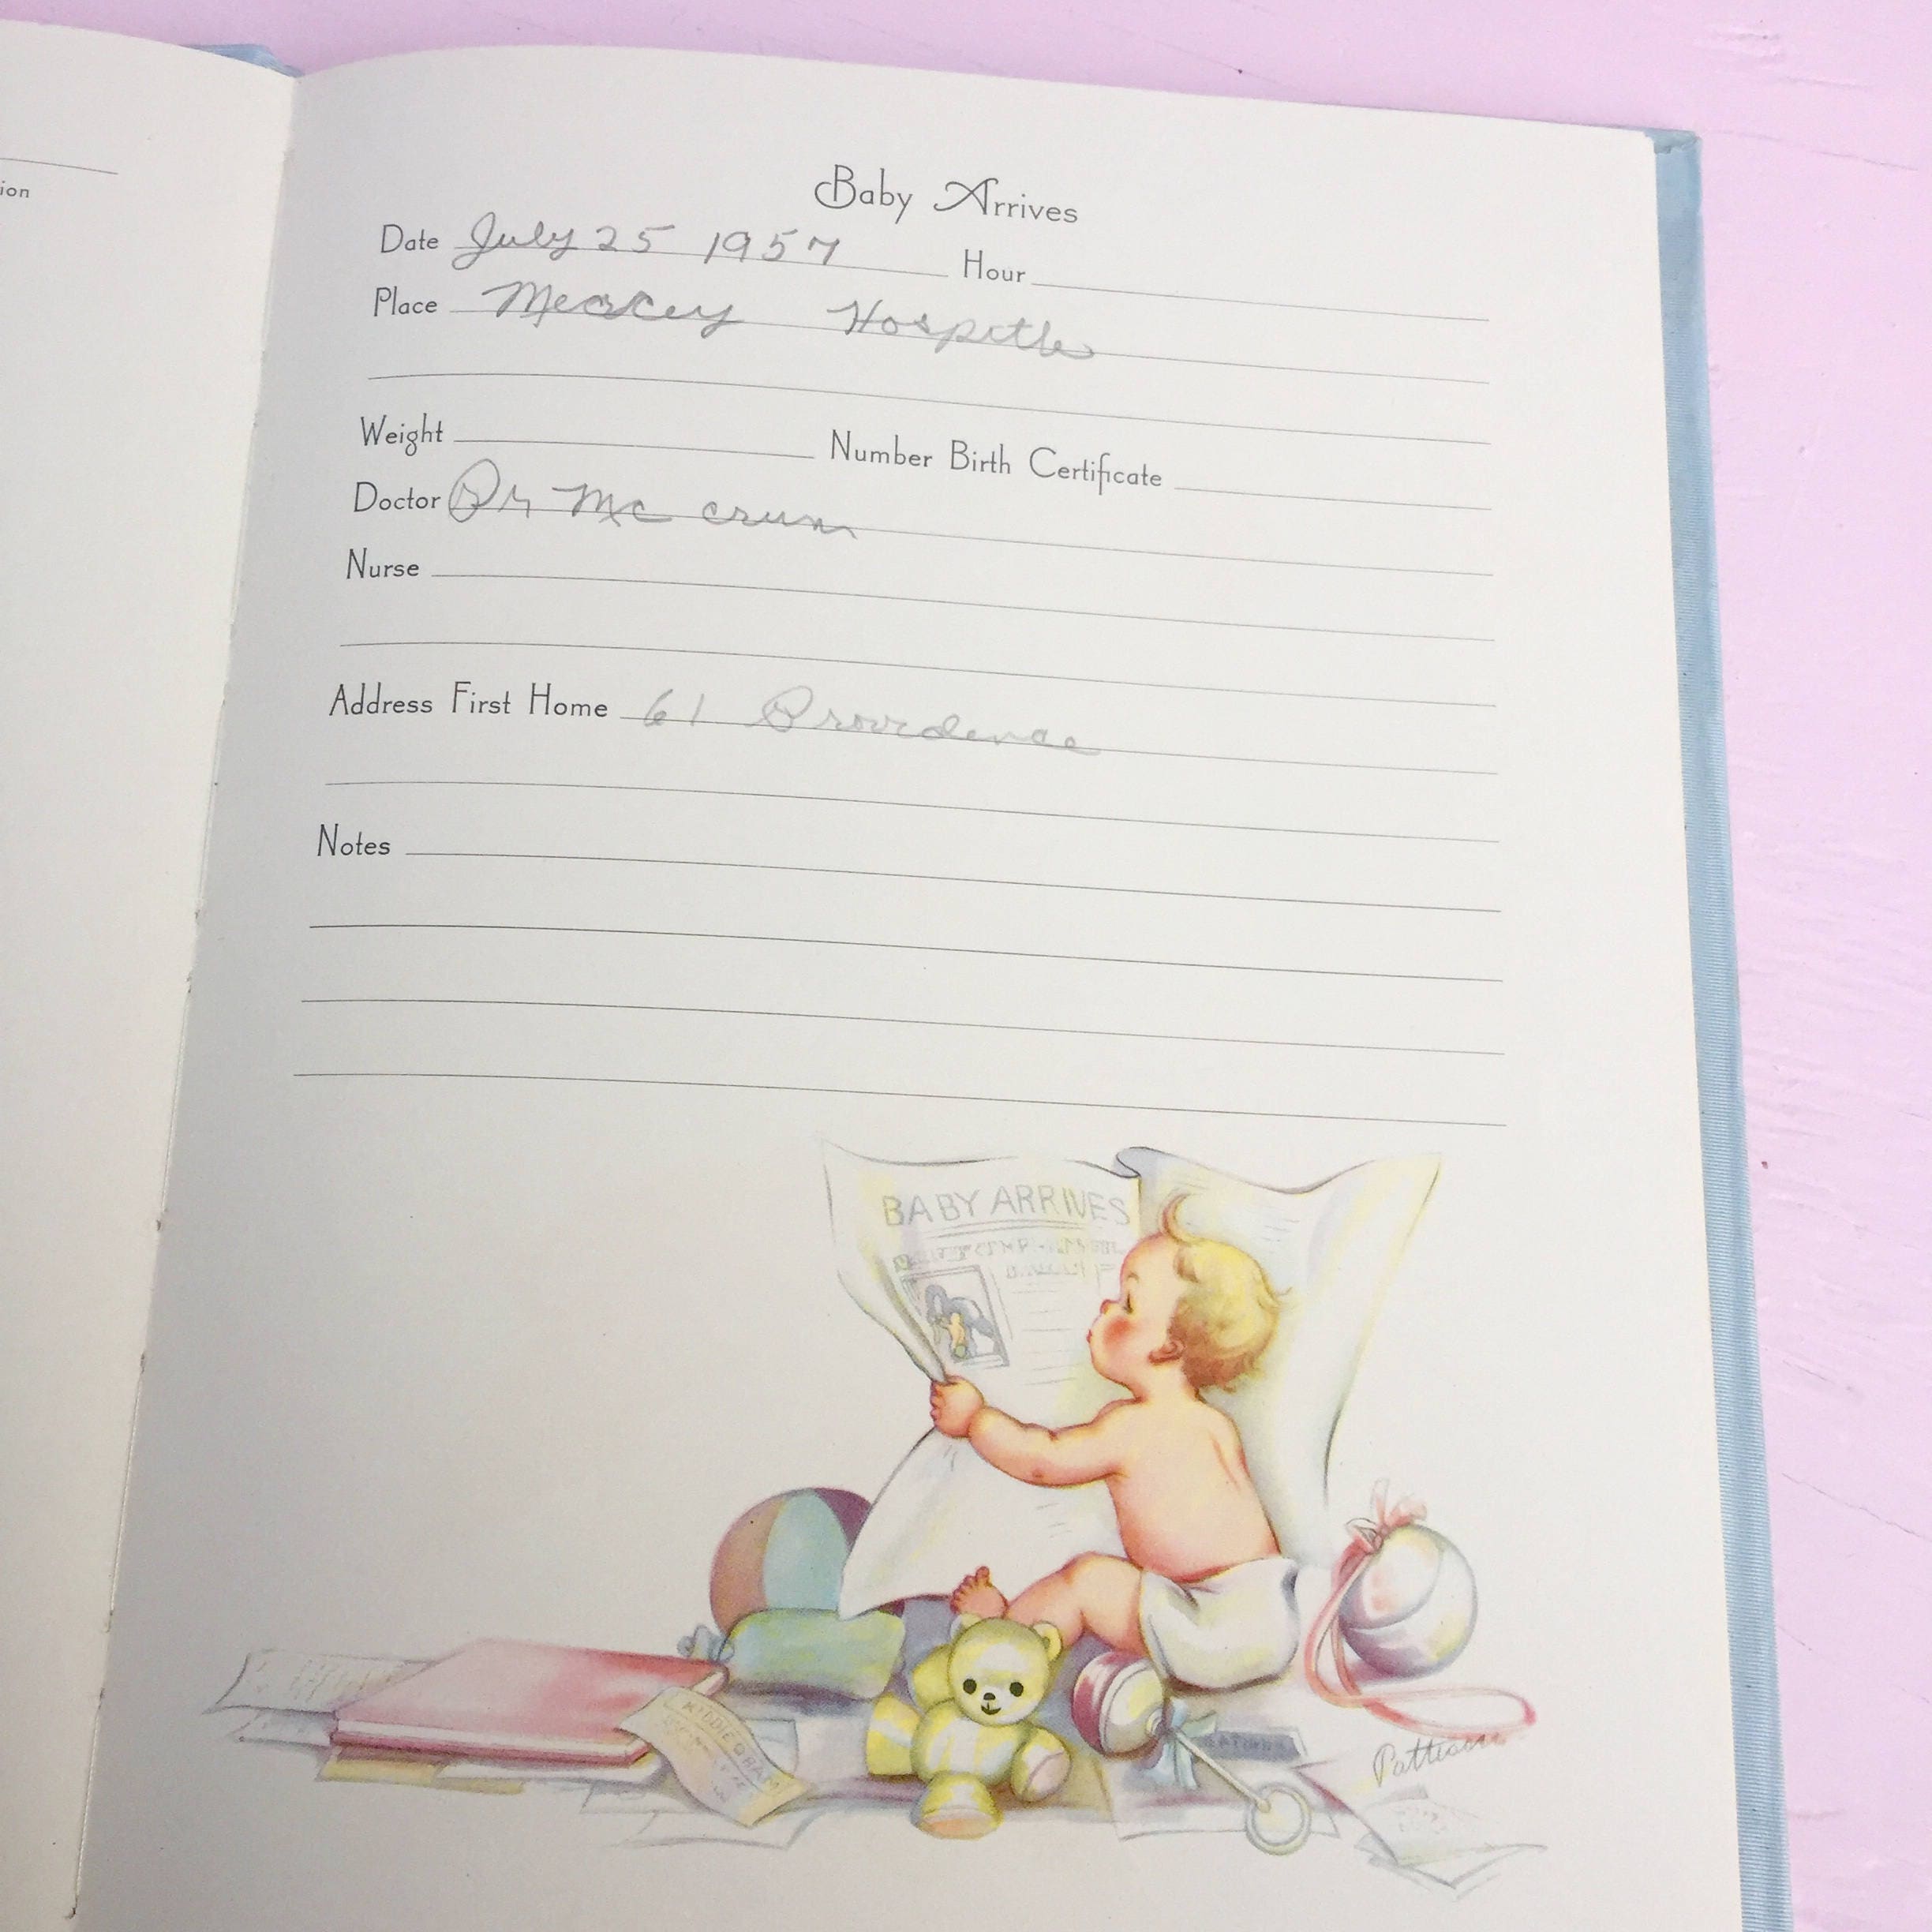 ion
Baby Arrives
Date July 25 1957 Hour
Place Meacey Hospitle
Weight Number Birth Certificate
Doctor Dr Mc crum
Nurse
Address First Home 61 Providence
Notes
BABY ARRIVES
KIDDIEGRAM